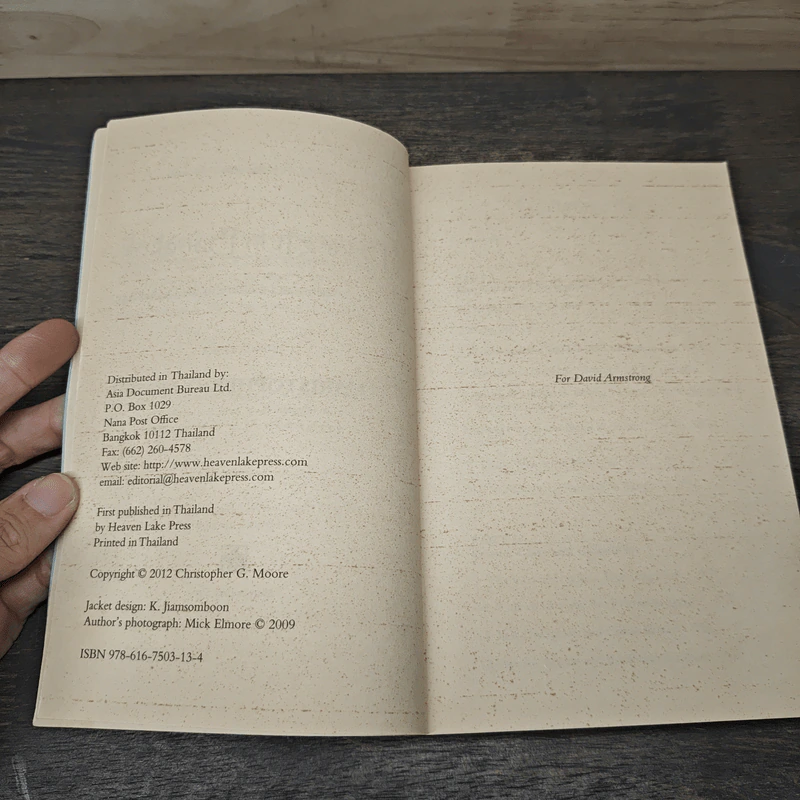 Distributed in Thailand by:
Asia Document Bureau Ltd.
P.O. Box 1029
Nana Post Office
Bangkok 10112 Thailand
Fax: (662) 260-4578
Web site: http://www.heavenlakepress.com
email: editorial@heavenlakepress.com
First published in Thailand
by Heaven Lake Press
Printed in Thailand
Copyright © 2012 Christopher G. Moore
Jacket design: K. Jiamsomboon
Author's photograph: Mick Elmore © 2009
ISBN 978-616-7503-13-4
For David Armstrong